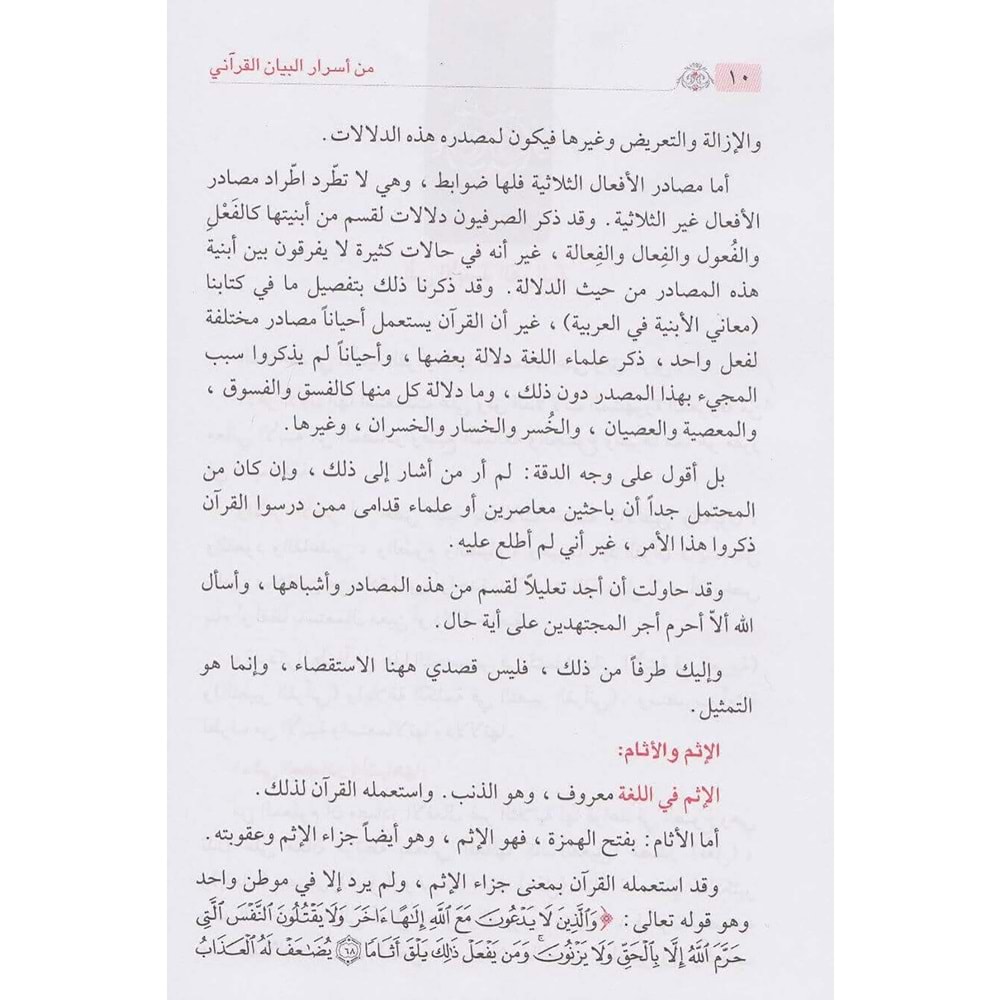 ١٠ من أسرار البيان القرآني
والإزالة والتعريض وغيرها فيكون لمصدره هذه الدلالات .
أما مصادر الأفعال الثلاثية فلها ضوابط ، وهي لا تطّرد اطّراد مصادر
الأفعال غير الثلاثية . وقد ذكر الصرفيون دلالات لقسم من أبنيتها كالفَعْلِ
والفُعول والفِعال والفِعالة ، غير أنه في حالات كثيرة لا يفرقون بين أبنية
هذه المصادر من حيث الدلالة . وقد ذكرنا ذلك بتفصيل ما في كتابنا
(معاني الأبنية في العربية) ، غير أن القرآن يستعمل أحياناً مصادر مختلفة
لفعل واحد ، ذكر علماء اللغة دلالة بعضها ، وأحياناً لم يذكروا سبب
المجيء بهذا المصدر دون ذلك ، وما دلالة كل منها كالفسق والفسوق ،
والمعصية والعصيان ، والخُسر والخسار والخسران ، وغيرها .
بل أقول على وجه الدقة : لم أر من أشار إلى ذلك ، وإن كان من
المحتمل جداً أن باحثين معاصرين أو علماء قدامى ممن درسوا القرآن
ذكروا هذا الأمر ، غير أني لم أطلع عليه .
وقد حاولت أن أجد تعليلاً لقسم من هذه المصادر وأشباهها ، وأسأل
الله ألاّ أحرم أجر المجتهدين على أية حال .
وإليك طرفاً من ذلك ، فليس قصدي ههنا الاستقصاء ، وإنما هو
التمثيل .
الإثم والأثام:
الإثم في اللغة معروف ، وهو الذنب . واستعمله القرآن لذلك .
أما الأثام : بفتح الهمزة ، فهو الإثم ، وهو أيضاً جزاء الإثم وعقوبته .
وقد استعمله القرآن بمعنى جزاء الإثم ، ولم يرد إلا في موطن واحد
وهو قوله تعالى : ﴿ وَٱلَّذِينَ لَا يَدْعُونَ مَعَ ٱللَّهِ إِلَـٰهًا ءَاخَرَ وَلَا يَقْتُلُونَ ٱلنَّفْسَ ٱلَّتِى
حَرَّمَ ٱللَّهُ إِلَّا بِٱلْحَقِّ وَلَا يَزْنُونَ ۚ وَمَن يَفْعَلْ ذَٰلِكَ يَلْقَ أَثَامًا ﴿٦٨﴾ يُضَـٰعَفْ لَهُ ٱلْعَذَابُ